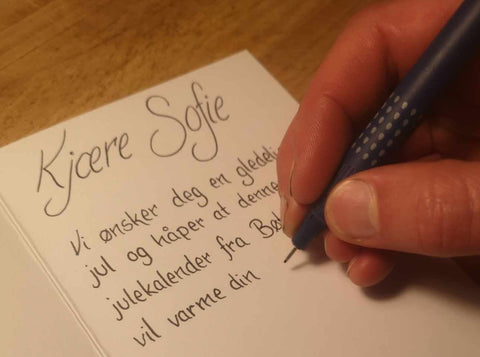 Kjære Sofie
Vi ønsker deg en
jul og håper at denne
julekalender fra
vil varme din